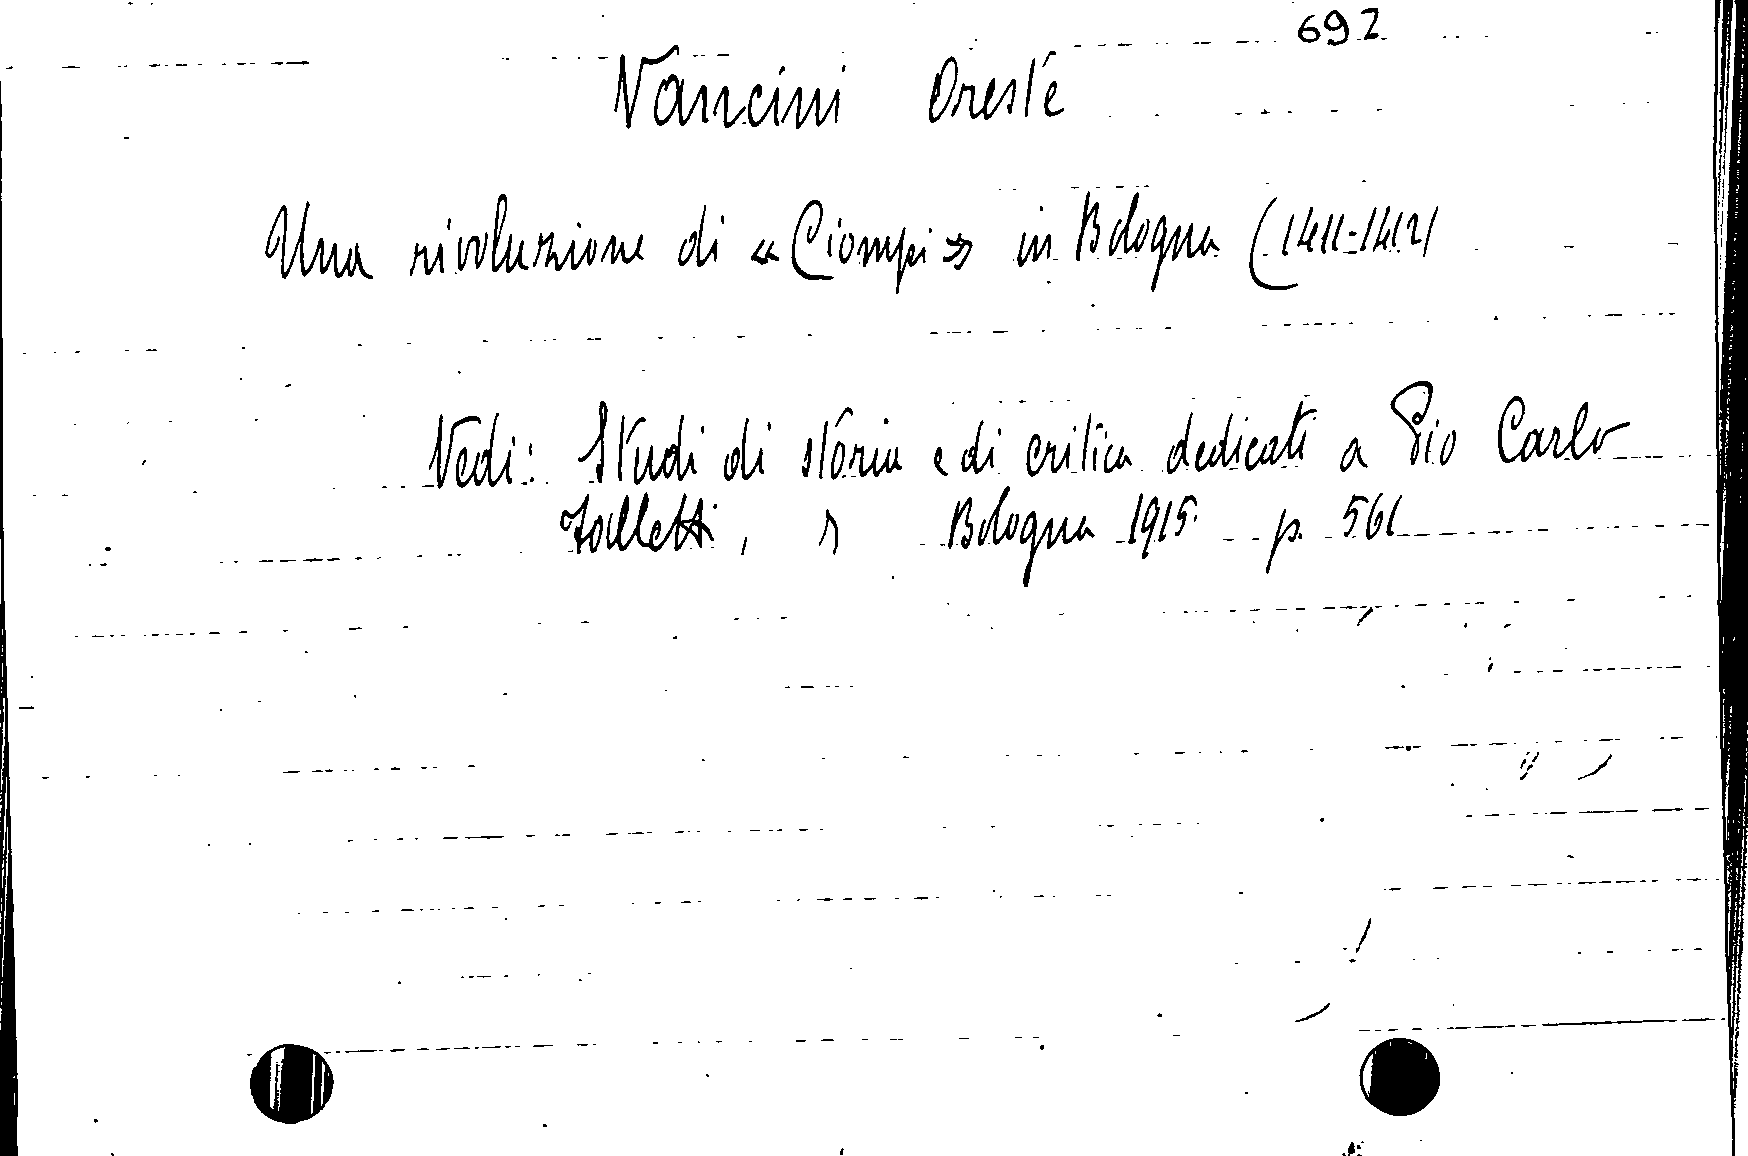 692
Vancini Oreste
Una rivoluzione di « Ciompi » in Bologna (1411-1412)
Vedi: Studi di storia e di critica dedicati a Pio Carlo
Falletti, Bologna 1915. p. 561